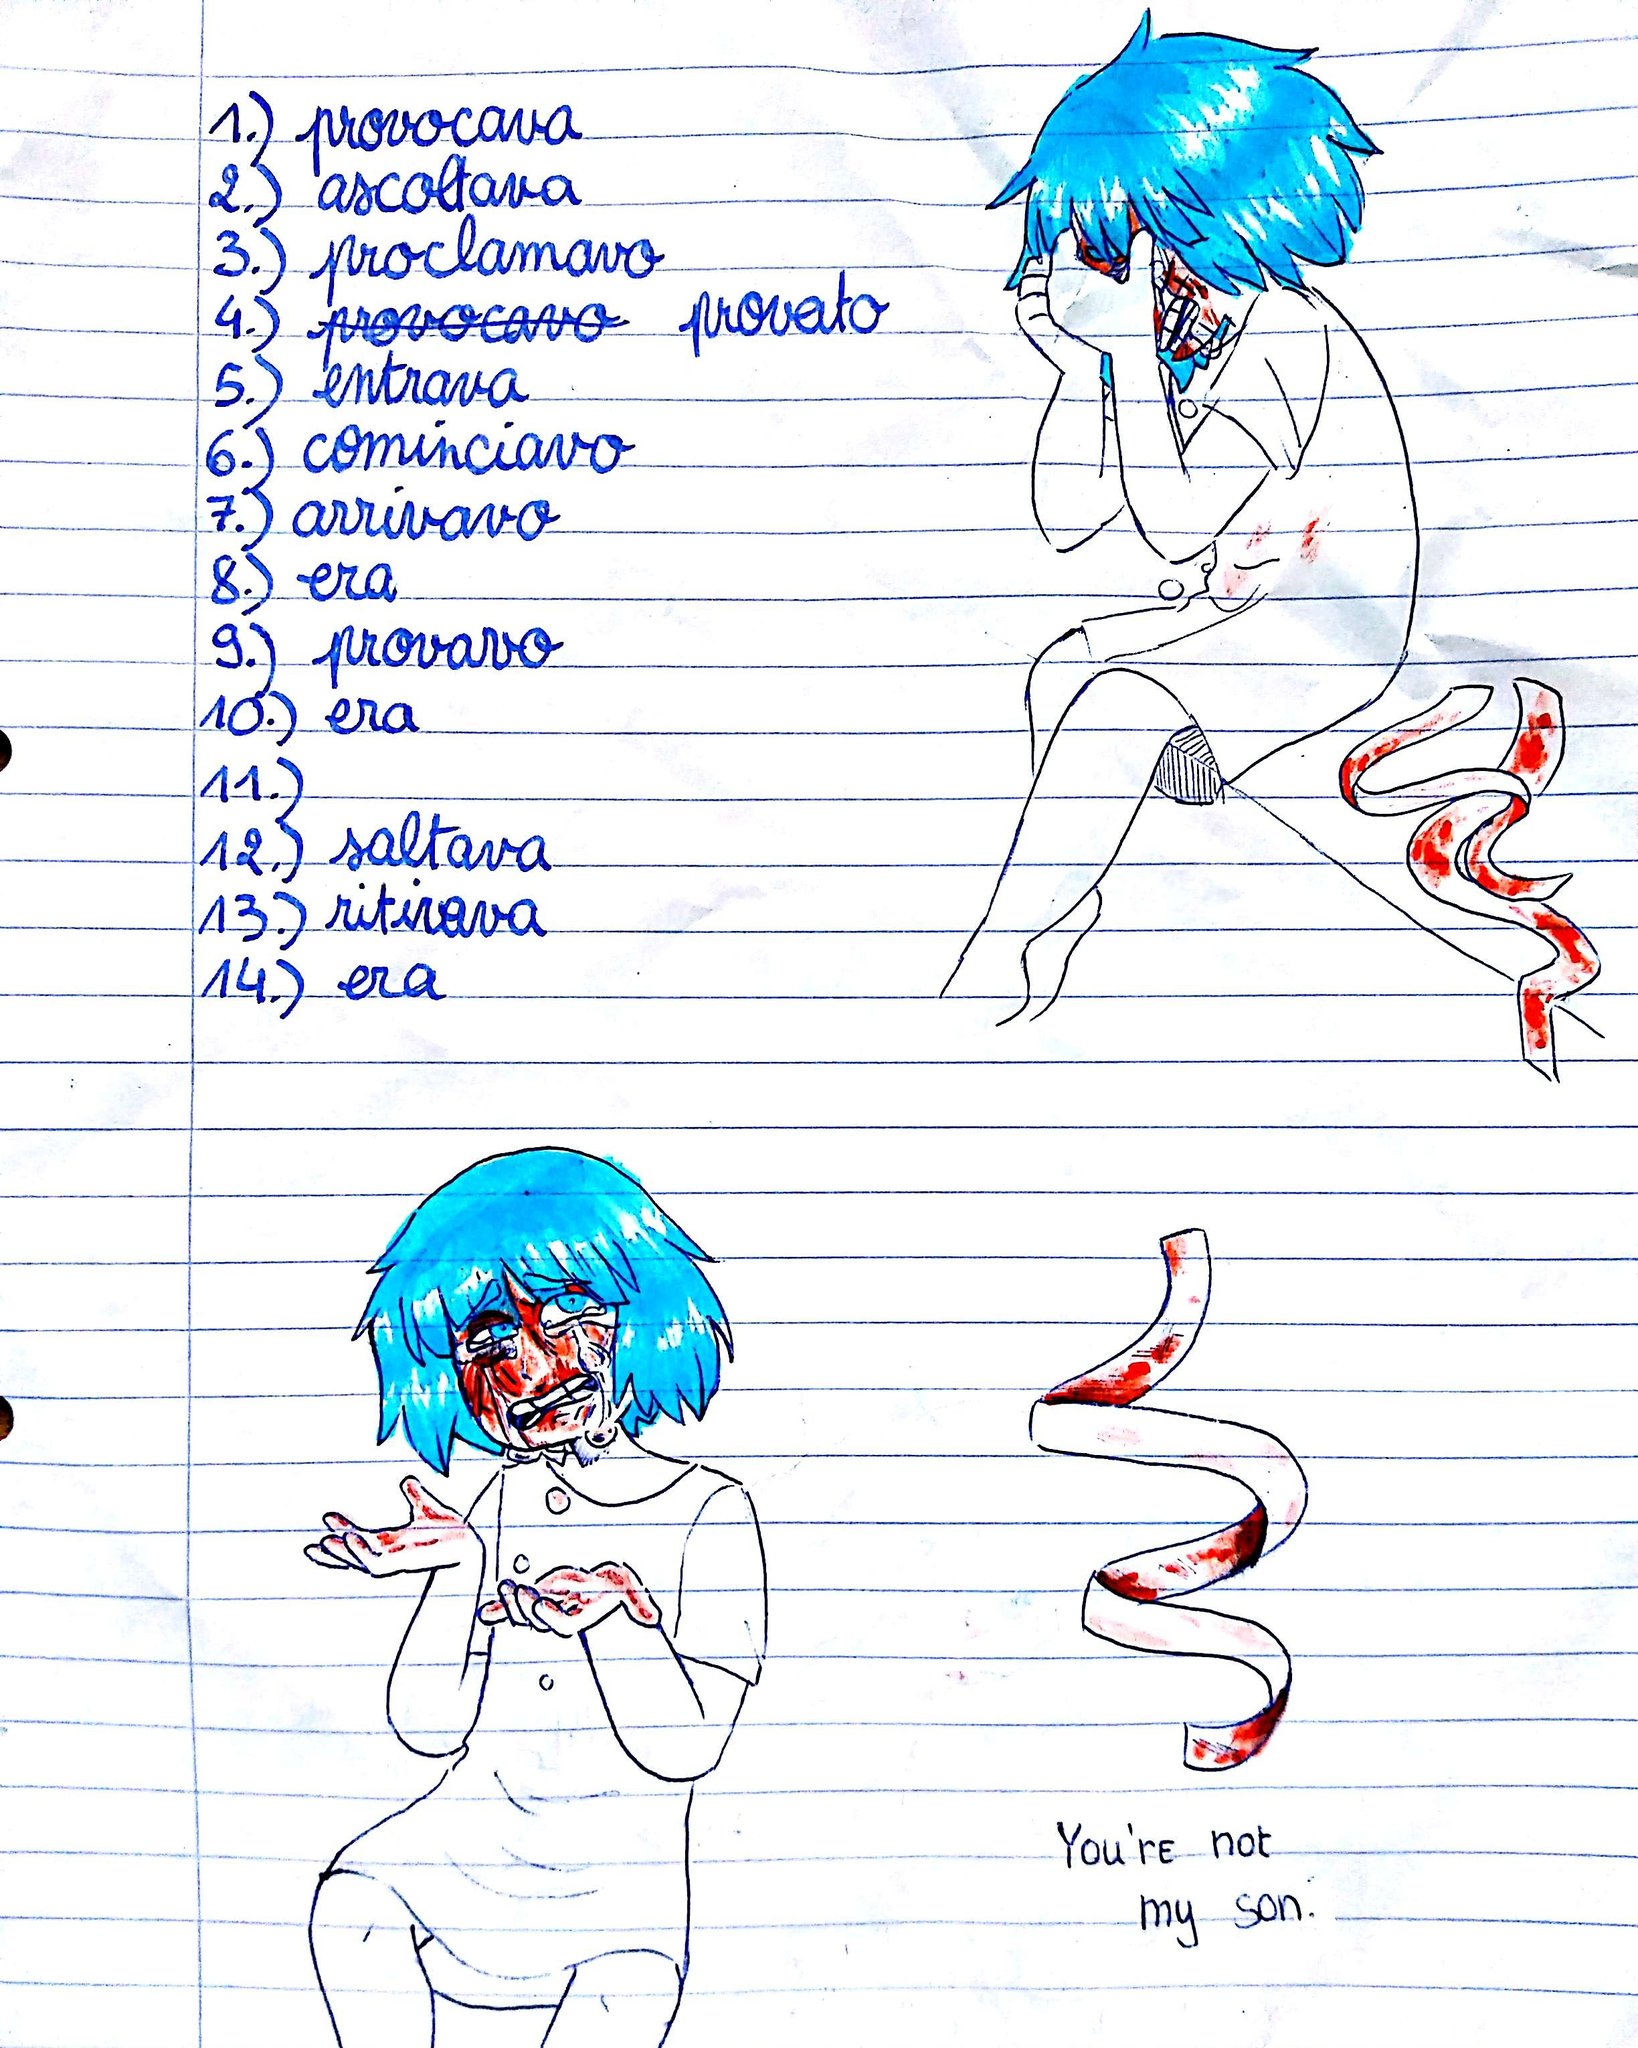 1.) provocava
2.) ascoltava
3.) proclamavo
4.) ~~provocavo~~ provato
5.) entrava
6.) cominciavo
7.) arrivavo
8.) era
9.) provavo
10.) era
11.)
12.) saltava
13.) ritirava
14.) era
You're not
my son.